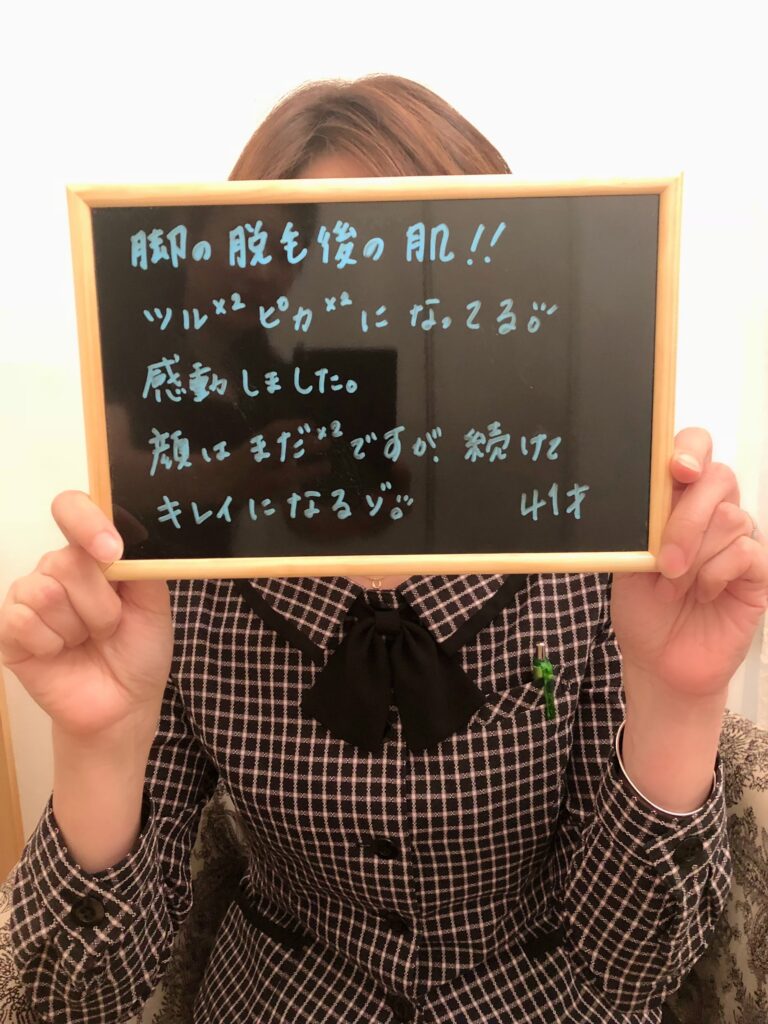 脚の脱毛後の肌!!
ツル×2ピカ×2になってる。
感動しました。
顔はまだ×2ですが続けて
キレイになるゾ。 41才